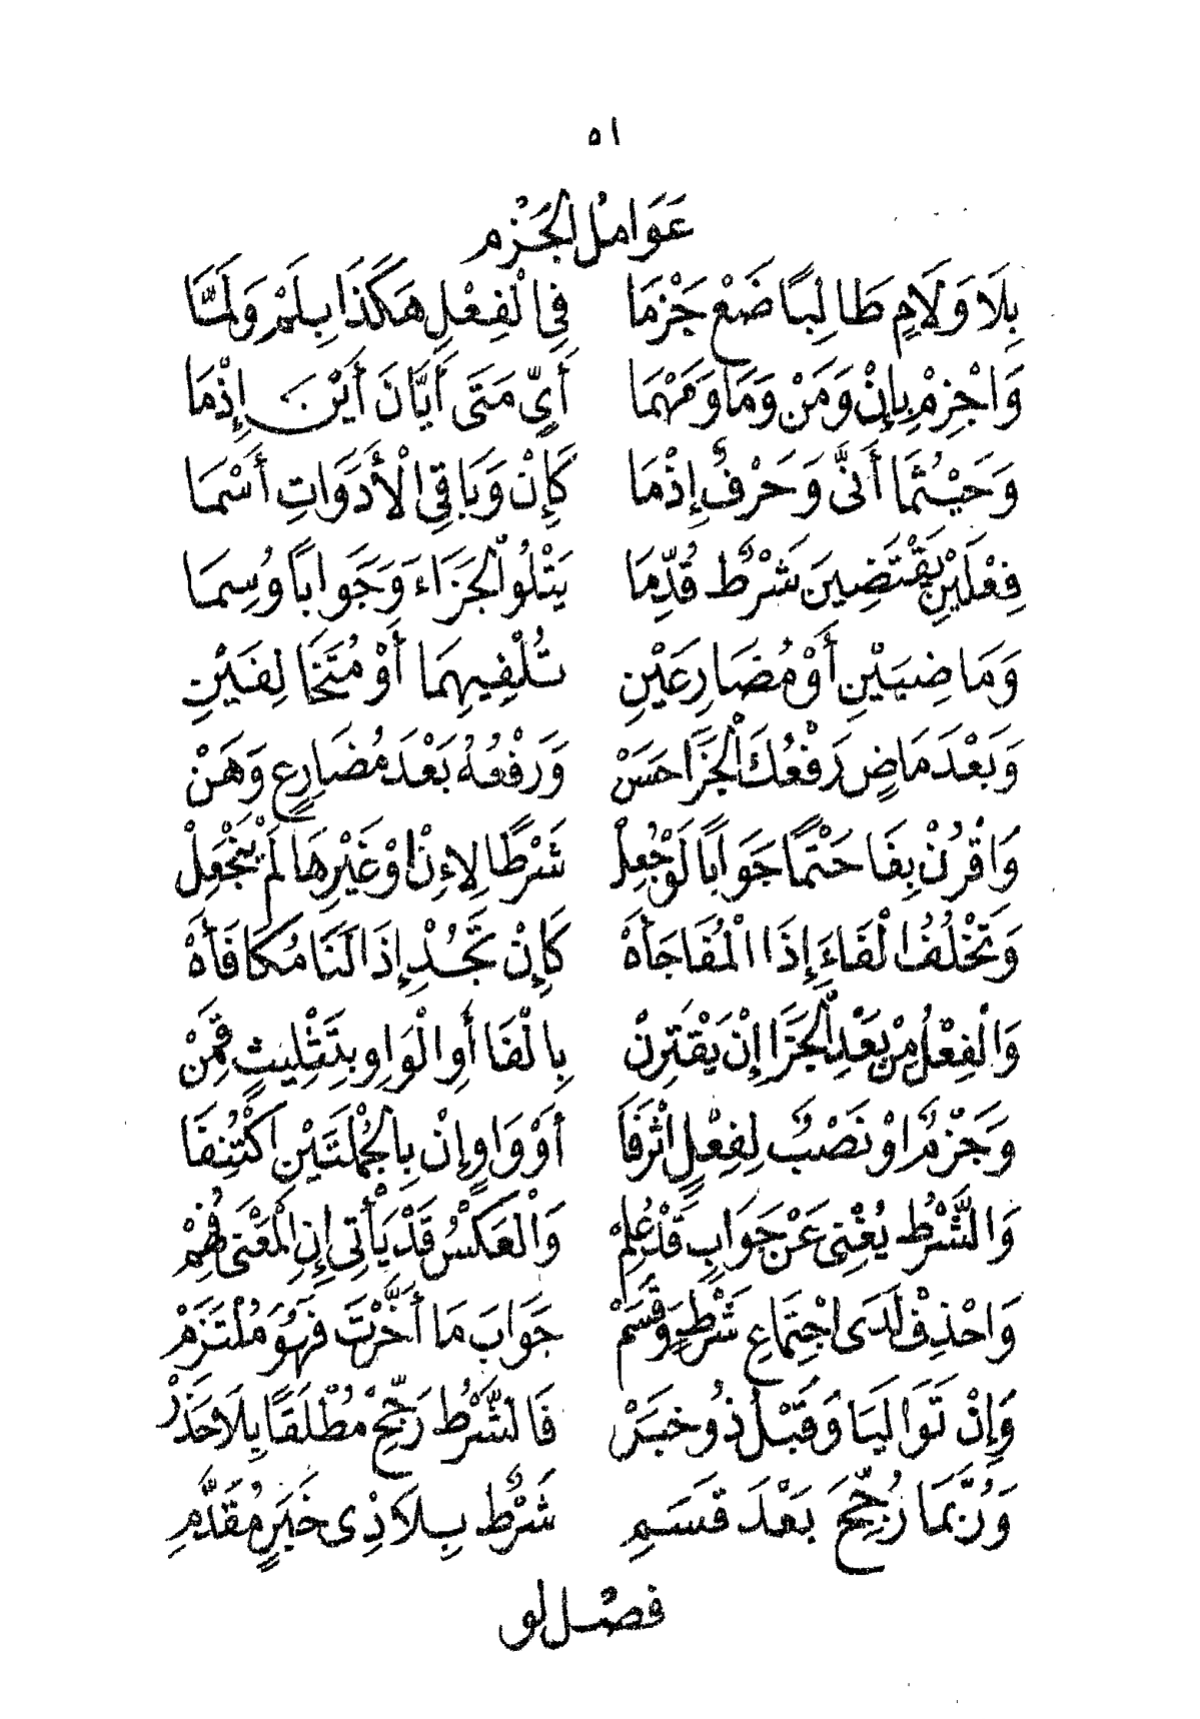 ٥١
عَوَامِلُ الْجَزْمِ
بِلَا وَلَامٍ طَالِبًا ضَعْ جَزْمَا فِي الْفِعْلِ هَكَذَا بِلَمْ وَلَمَّا
وَاجْزِمْ بِإِنْ وَمَنْ وَمَا وَمَهْمَا أَيٍّ مَتَى أَيَّانَ أَيْنَ إِذْمَا
وَحَيْثُمَا أَنَّى وَحَرْفٌ إِذْمَا كَإِنْ وَبَاقِي الْأَدَوَاتِ أَسْمَا
فِعْلَيْنِ يَقْتَضِينَ شَرْطٌ قُدِّمَا يَتْلُو الْجَزَاءَ وَجَوَابًا وُسِمَا
وَمَاضِيَيْنِ أَوْ مُضَارِعَيْنِ تُلْفِيهِمَا أَوْ مُتَخَالِفَيْنِ
وَبَعْدَ مَاضٍ رَفْعُكَ الْجَزَا حَسَنْ وَرَفْعُهُ بَعْدَ مُضَارِعٍ وَهَنْ
وَاقْرُنْ بِفَا حَتْمًا جَوَابًا لَوْ جُعِلْ شَرْطًا لِإِنْ اوْ غَيْرِهَا لَمْ يَنْجَعِلْ
وَتَخْلُفُ الْفَاءَ إِذَا الْمُفَاجَأَهْ كَإِنْ تَجُدْ إِذَا لَنَا مُكَافَأَهْ
وَالْفِعْلُ مِنْ بَعْدِ الْجَزَا إِنْ يَقْتَرِنْ بِالْفَا أَوِ الْوَاوِ بِتَثْلِيثٍ قَمِنْ
وَجَزْمٌ اوْ نَصْبٌ لِفِعْلٍ اثْرَفَا أَوْ وَاوٍ إِنْ بِالْجُمْلَتَيْنِ اكْتُنِفَا
وَالشَّرْطُ يُغْنِى عَنْ جَوَابٍ قَدْ عُلِمْ وَالْعَكْسُ قَدْ يَأْتِى إِنِ الْمَعْنَى فُهِمْ
وَاحْذِفْ لَدَى اجْتِمَاعِ شَرْطٍ وَقَسَمْ جَوَابَ مَا أَخَّرْتَ فَهُوَ مُلْتَزَمْ
وَإِنْ تَوَالَيَا وَقَبْلُ ذُو خَبَرْ فَالشَّرْطَ رَجِّحْ مُطْلَقًا بِلَا حَذَرْ
وَرُبَّمَا رُجِّحَ بَعْدَ قَسَمِ شَرْطٌ بِلَا ذِى خَبَرٍ مُقَدَّمِ
فصْل لو